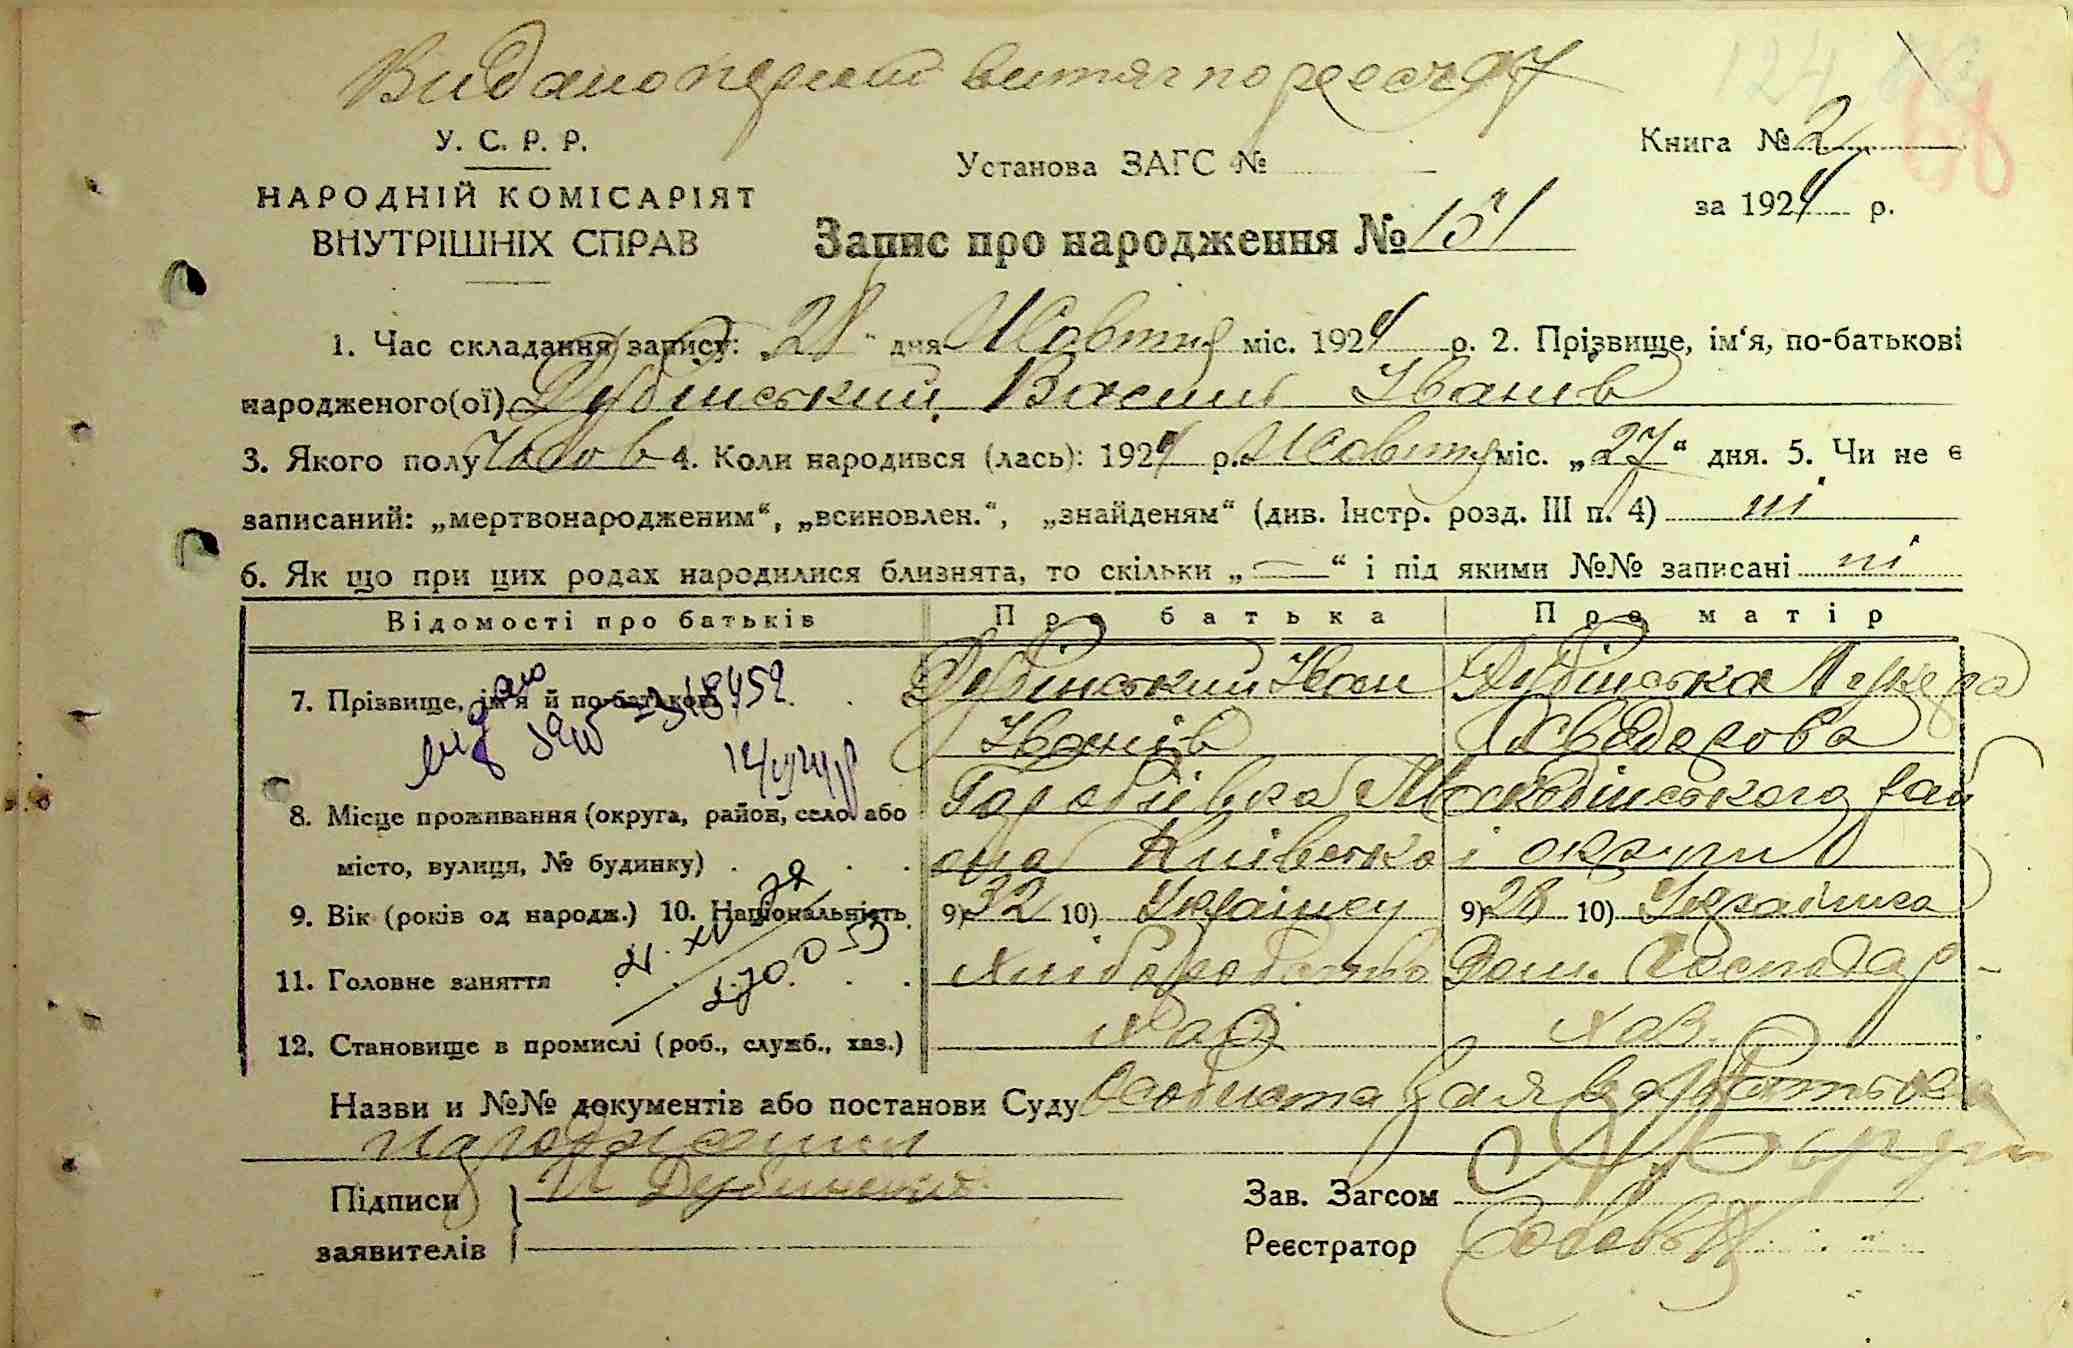 Видано перший витяг по реєстру
У. С. Р. Р.
НАРОДНІЙ КОМІСАРІЯТ
ВНУТРІШНІХ СПРАВ
Установа ЗАГС №
Запис про народження № 151
Книга № 2
за 1924 р.
68
1. Час складання запису: „28“ дня Жовтня міс. 1924 р. 2. Прізвище, ім‘я, по-батькові
народженого(ої) Дубінський Василь Іванів
3. Якого полу Чолов 4. Коли народився (лась): 1924 р. Жовтня міс. „27“ дня. 5. Чи не є
записаний: „мертвонародженим“, „всиновлен.“, „знайденям“ (див. Інстр. розд. III п. 4) ні
6. Як що при цих родах народилися близнята, то скільки „—“ і під якими №№ записані ні
Відомості про батьків Про батька Про матір
7. Прізвище, ім‘я й по-батькові Дубінський Іван Дубінська
Іванів Хведорова
8. Місце проживання (округа, район, село або
місто, вулиця, № будинку) Київської округи
9. Вік (років од народж.) 10. Національність 9) 32 10) Українец 9) 28 10) Українка
11. Головне заняття Хліборобство Дом. Господар-
12. Становище в промислі (роб., служб., хаз.) хаз хаз.
Назви и №№ документів або постанови Суду Особиста заява батька
народження
Підписи
заявителів
И Дубинский
Зав. Загсом
Реєстратор